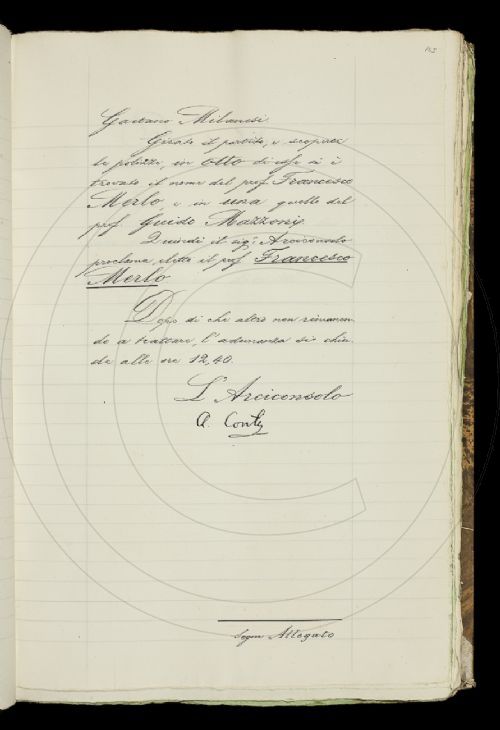 Gaetano Milanesi.
Girato il partito, e scoperte
le polizze, in otto di esse si è
trovato il nome del prof. Francesco
Merlo, e in una quello del
prof. Guido Mazzoni.
Quindi il sig. Arciconsolo
proclama eletto il prof. Francesco
Merlo
Dopo di che altro non rimanen-
do a trattare, l'adunanza si chiu-
de alle ore 12,40.
L'Arciconsolo
A. Conti
Segue Allegato